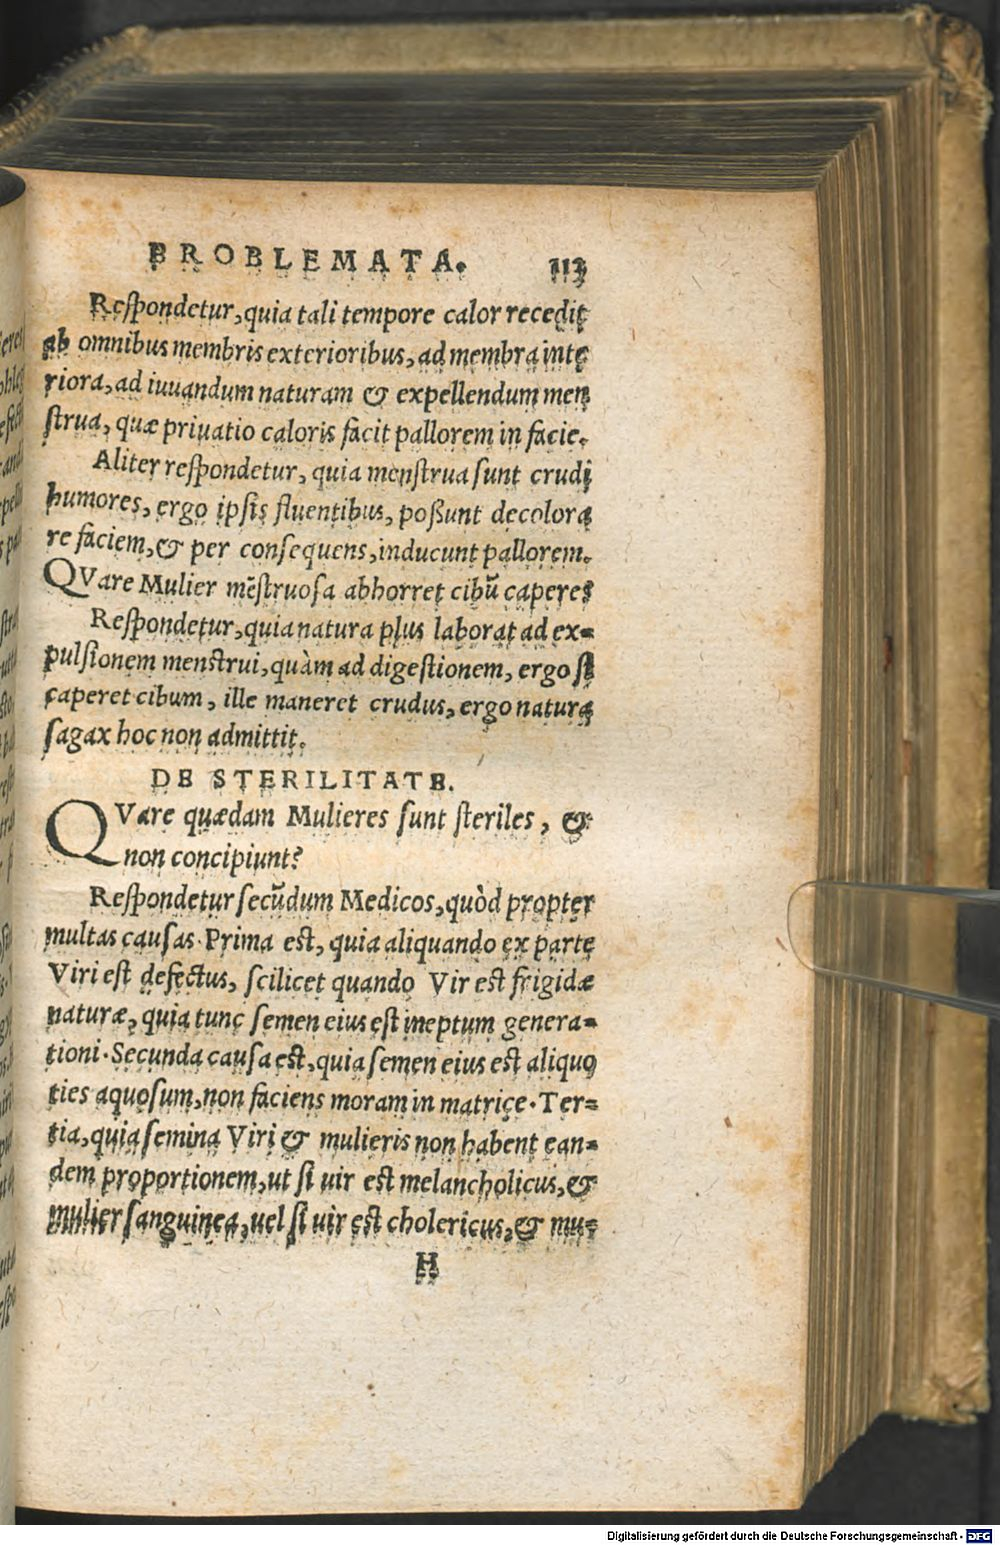 PROBLEMATA. 113
Respondetur, quia tali tempore calor recedit
ab omnibus membris exterioribus, ad membra inte
riora, ad iuuandum naturam & expellendum men
strua, quæ priuatio caloris facit pallorem in facie.
Aliter respondetur, quia menstrua sunt crudi
humores, ergo ipsis fluentibus, poßunt decolora
re faciem, & per consequens, inducunt pallorem.
QVare Mulier mēstruosa abhorret cibū capere?
Respondetur, quia natura plus laborat ad ex=
pulsionem menstrui, quàm ad digestionem, ergo si
caperet cibum, ille maneret crudus, ergo natura
sagax hoc non admittit.
DE STERILITATE.
QVare quædam Mulieres sunt steriles, &
non concipiunt?
Respondetur secūdum Medicos, quòd propter
multas causas. Prima est, quia aliquando ex parte
Viri est defectus, scilicet quando Vir est frigidæ
naturæ, quia tunc semen eius est ineptum genera=
tioni. Secunda causa est, quia semen eius est aliquo
ties aquosum, non faciens moram in matrice. Ter=
tia, quia semina Viri & mulieris non habent ean=
dem proportionem, ut si uir est melancholicus, &
mulier sanguinea, uel si uir est cholericus, & mu=
H
Digitalisierung gefördert durch die Deutsche Forschungsgemeinschaft - DFG